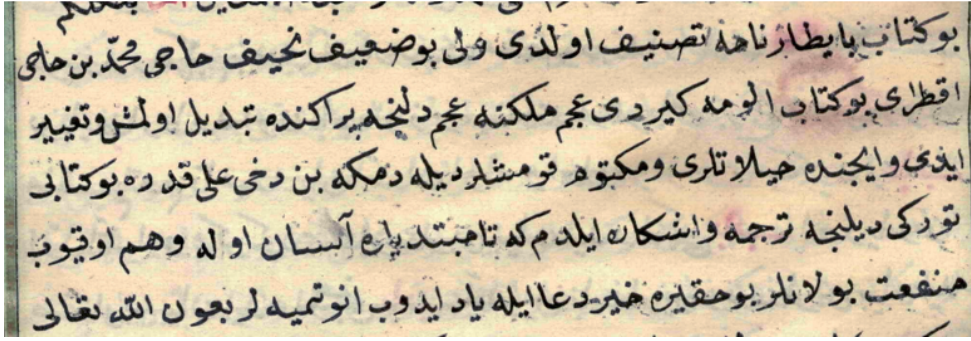 بو كتاب بايطارنامه تصنيف اولدى ولى بو ضعيف نحيف حاجى محمد بن حاجى
اقطراى بو كتاب الومه كيردى عجم ملكنه عجم دلنجه پراكنده تبديل اولمش وتغيير
ايدى وايچنده حيلاتلرى ومكتوم قومشلرديله دمكه بن دخى على قدره بو كتابى
توركى ديلنجه ترجمه واشكاره ايلدم كه تا مبتديلره آسان اوله وهم اوقيوب
منفعت بولانلر بو حقيره خير دعا ايله ياد ايدوب انوتميه لر بعون الله تعالى